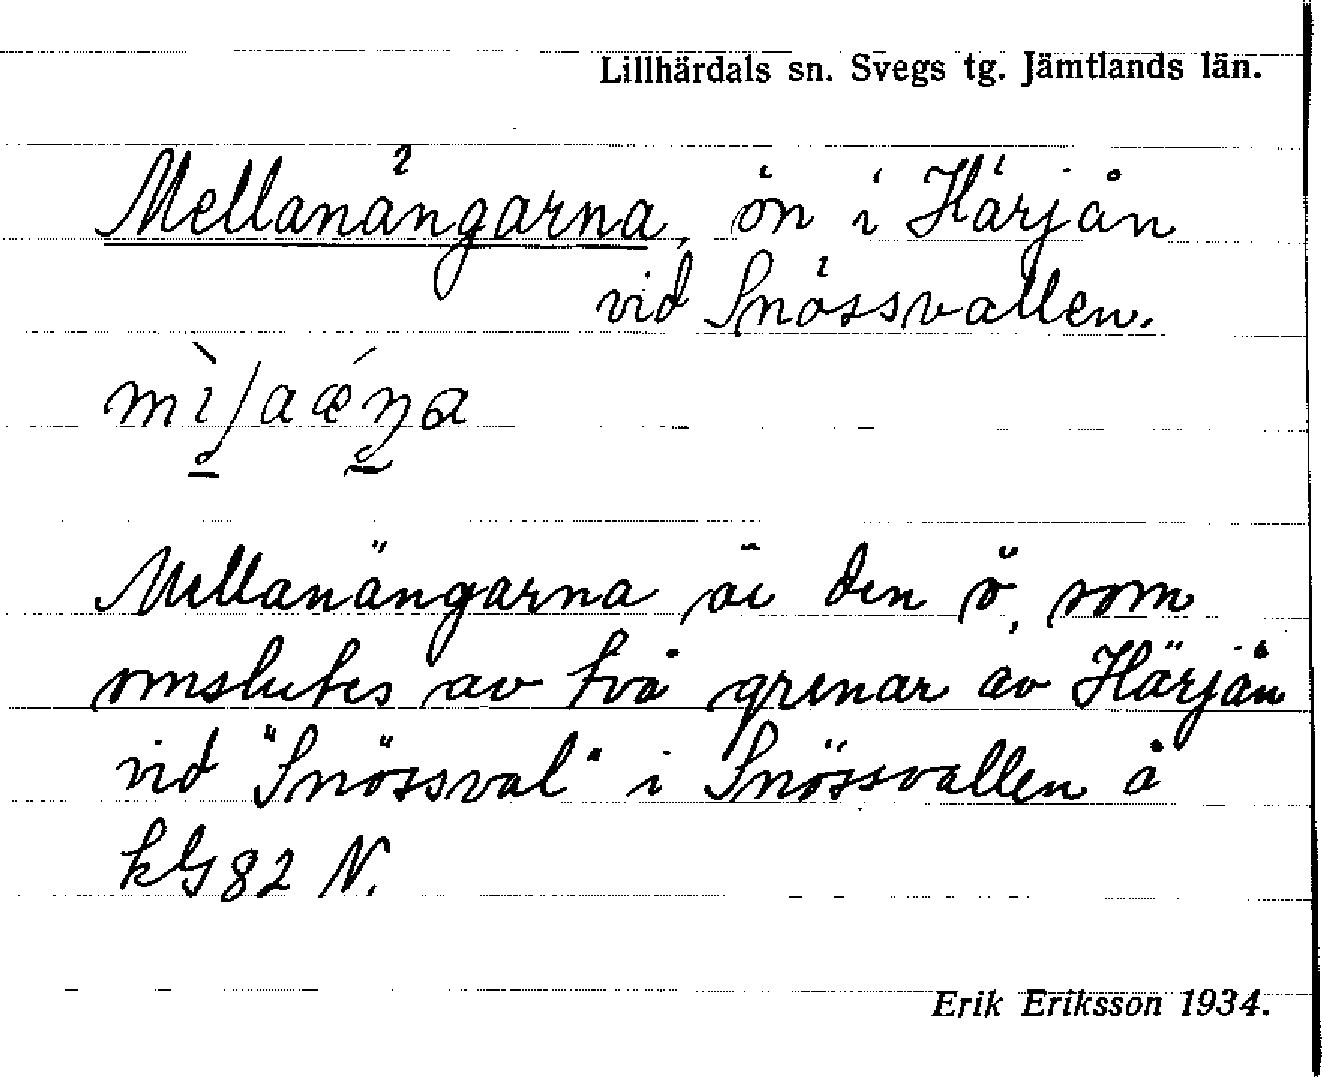 Lillhärdals sn. Svegs tg. Jämtlands län.
Mellanängarna, ön i Härjån
vid Snössvallen.
Mellanängarna är den ö, som
omslutes av två grenar av Härjån
vid "Snössval" i Snössvallen å
kG 82 N.
Erik Eriksson 1934.